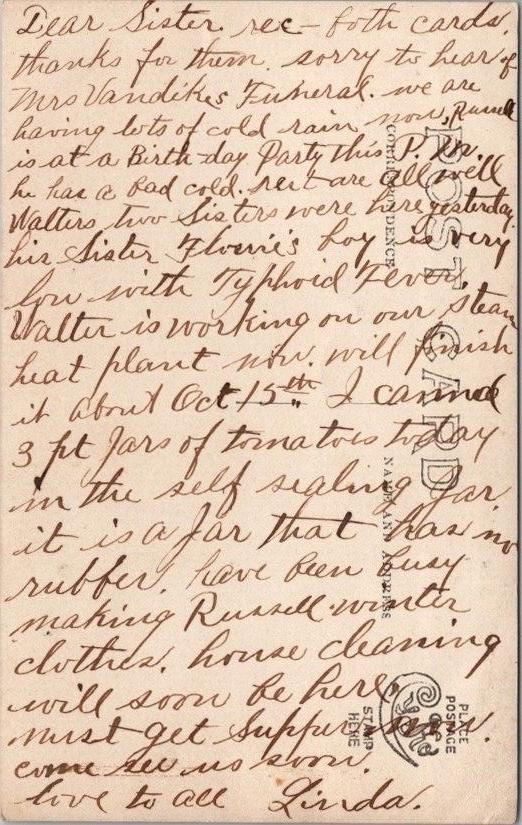 Dear Sister. rec- both cards.
thanks for them. sorry to hear of
Mrs Vandikes Funeral. we are
having lots of cold rain now, Russell
is at a Birth-day Party this P.M.
he has a bad cold. rest are all well
Walters two Sisters were here yesterday.
his Sister Florrie's boy is very
low with Typhoid Fever.
Walter is working on our steam
heat plant now. will finish
it about Oct 15th. I canned
3 pt Jars of tomatoes today
in the self sealing Jar.
it is a Jar that has no
rubber. have been busy
making Russell winter
clothes. house cleaning
will soon be here,
must get Supper now.
come see us soon.
love to all Linda.
POST CARD
CORRESPONDENCE
NAME AND ADDRESS
PLACE
POSTAGE
STAMP
HERE